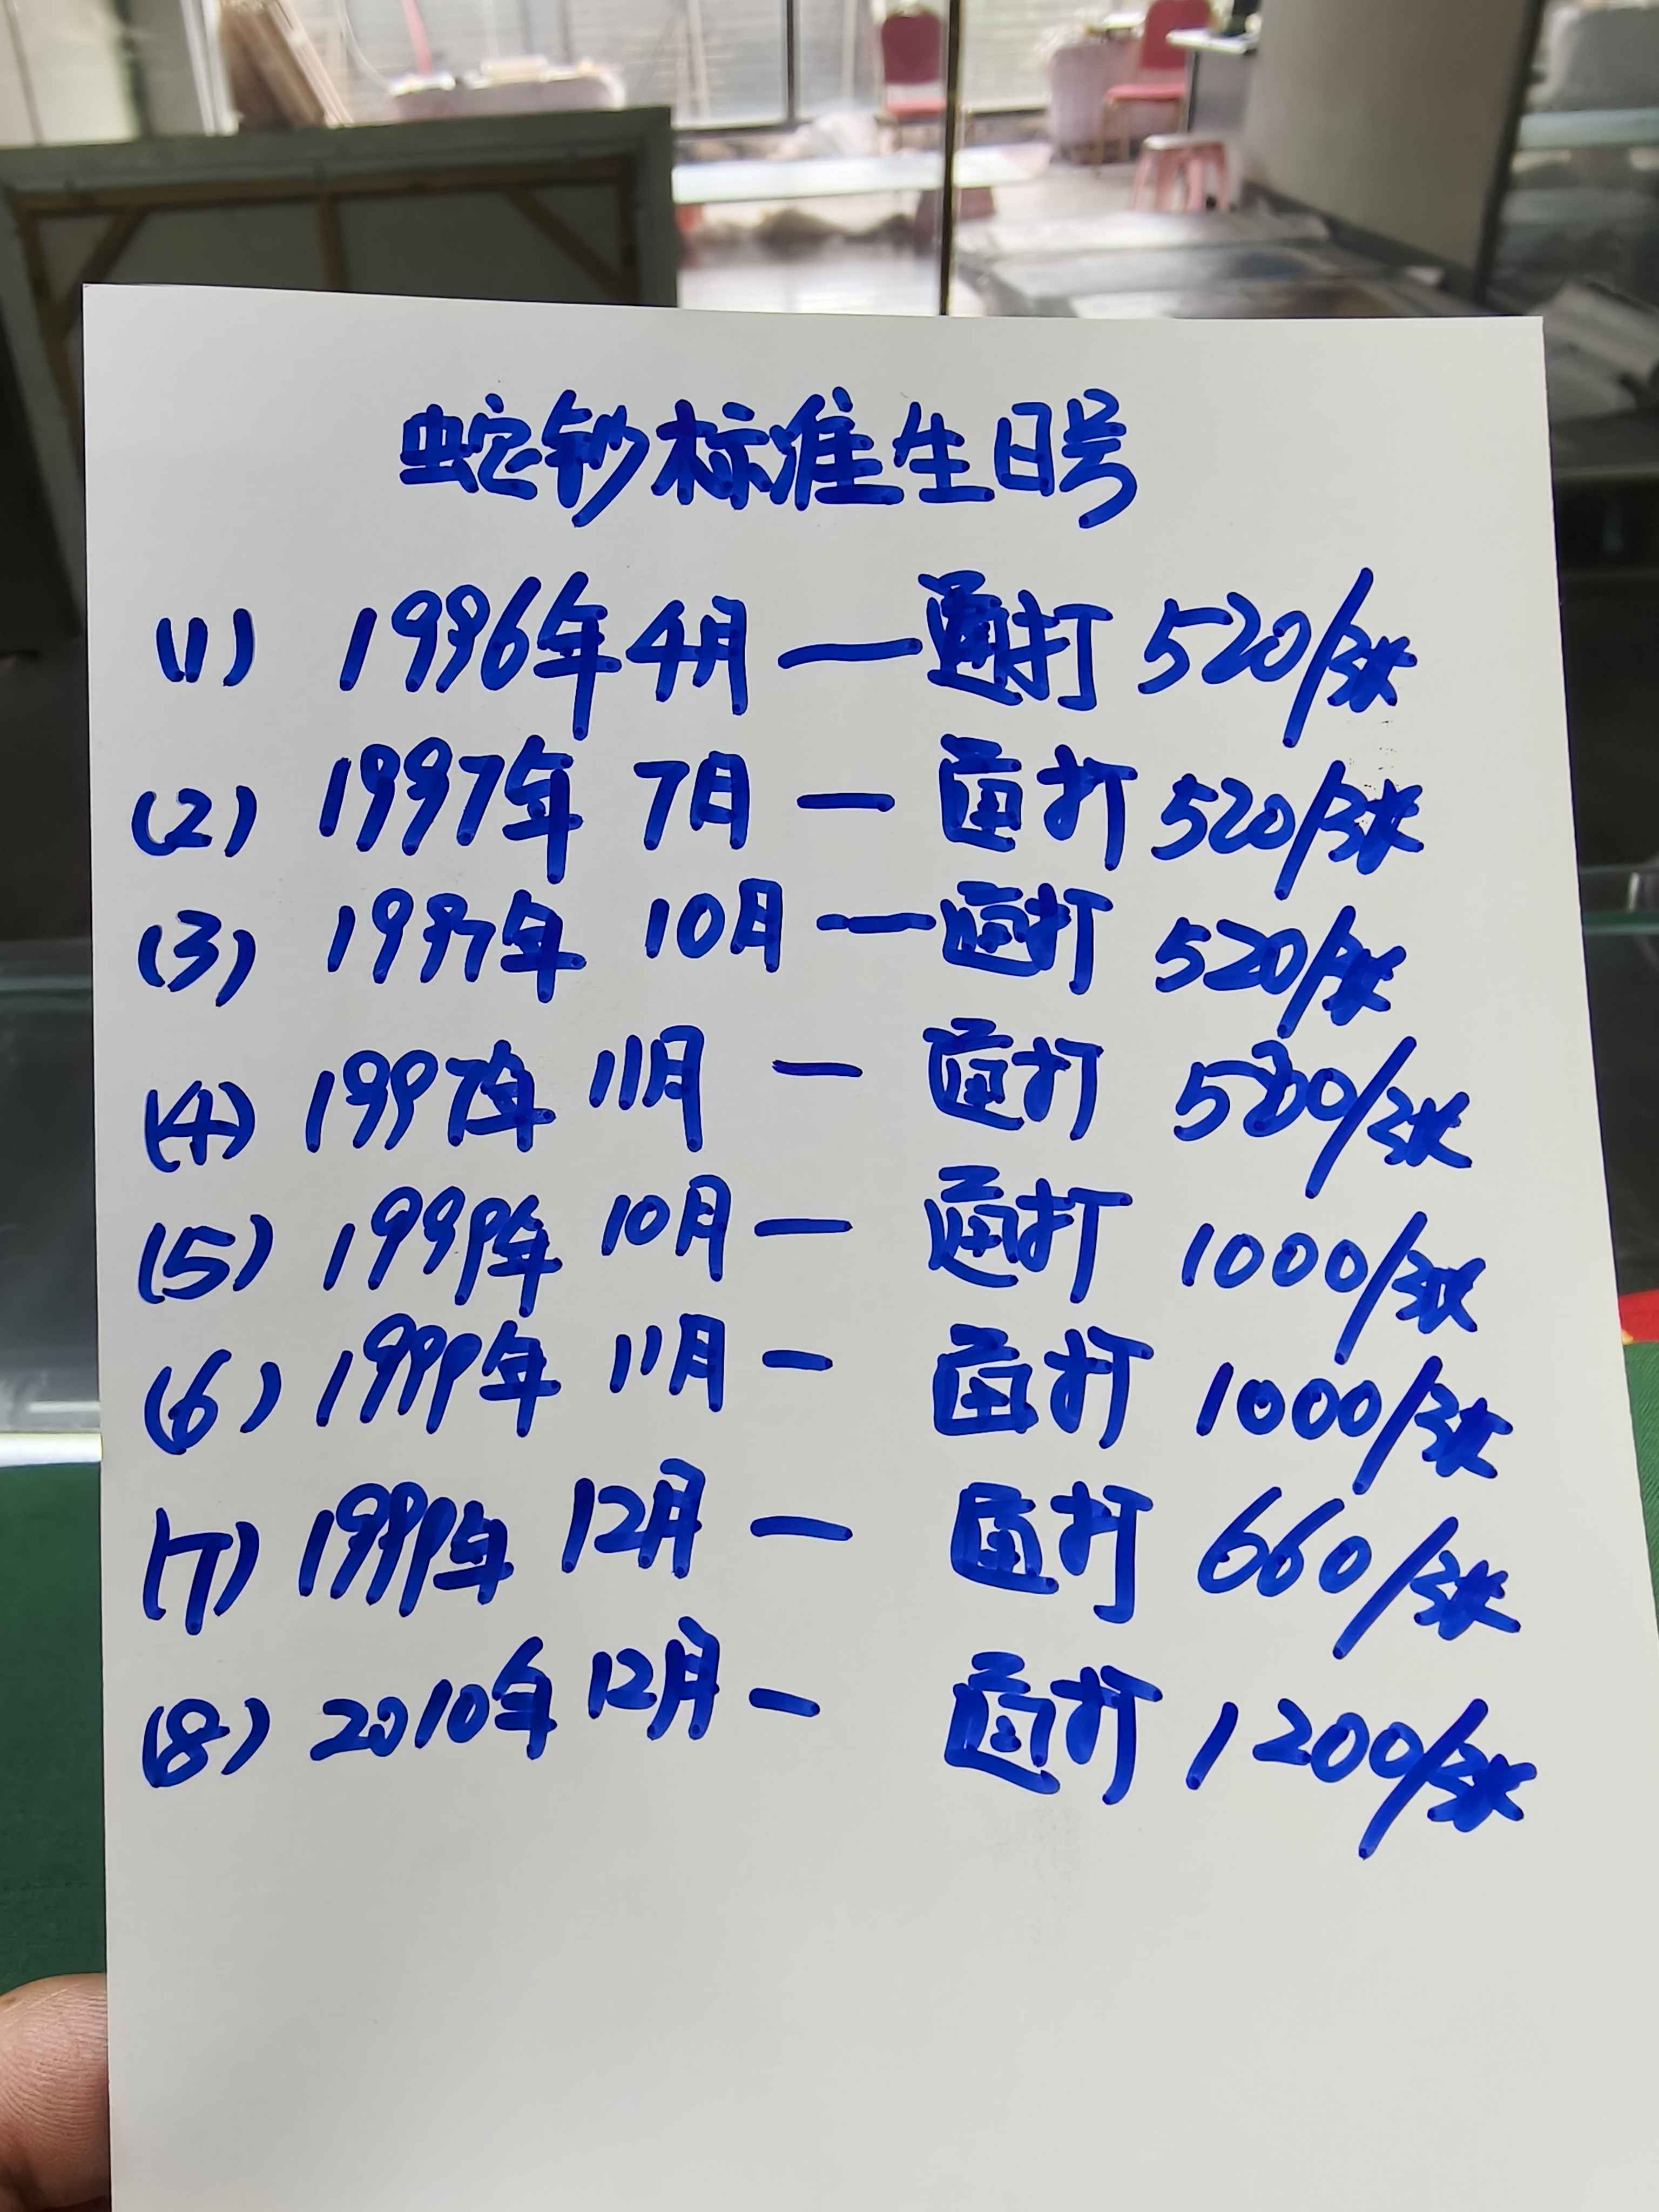 蛇钞标准生日号
(1) 1996年4月 — 通打 520/张
(2) 1997年 7月 — 通打 520/张
(3) 1997年 10月 — 通打 520/张
(4) 1997年 11月 — 通打 500/张
(5) 1999年 10月 — 通打 1000/张
(6) 1999年 11月 — 通打 1000/张
(7) 1999年 12月 — 通打 660/张
(8) 2010年 12月 — 通打 1200/张